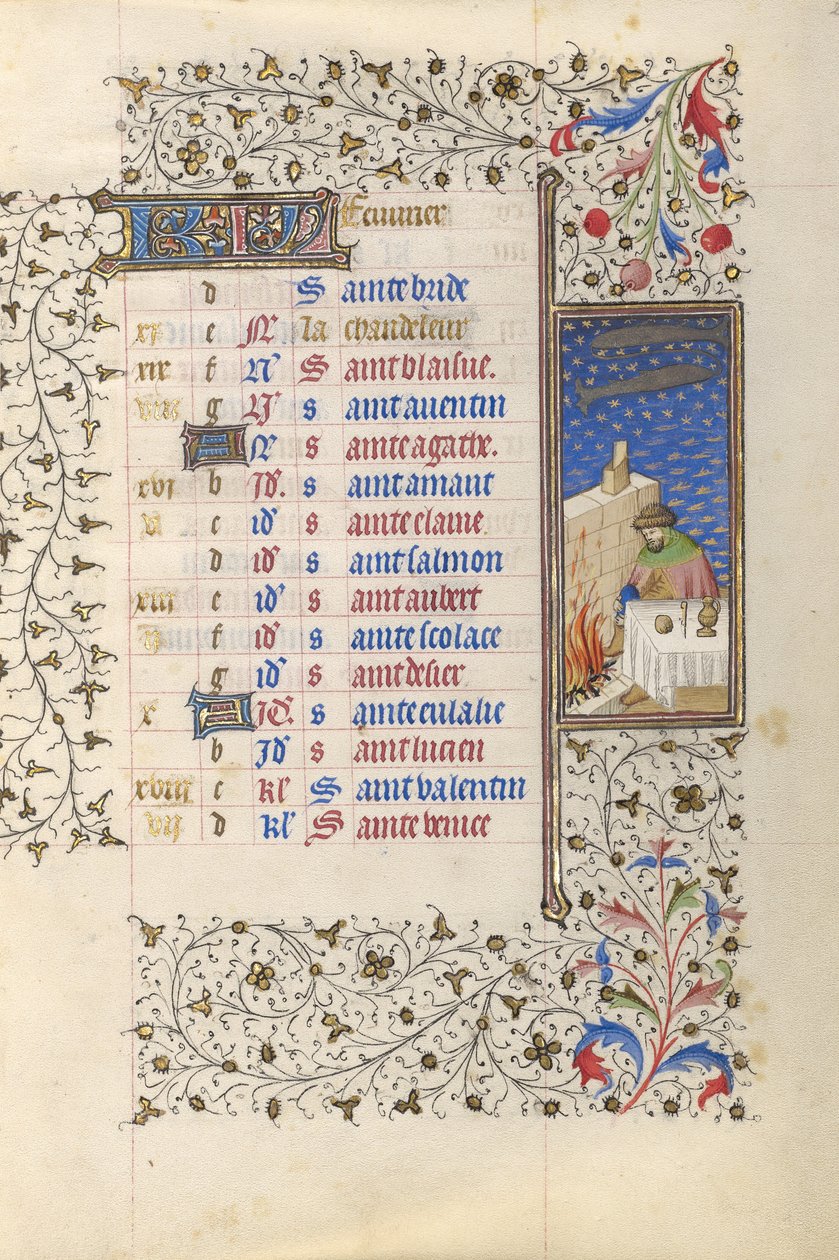 KL Feurier
d Sainte bride
xi e N la chandeleur
xix f N Saint blaisue.
viii g N saint auentin
A N sainte agathe.
xvi b Id. saint amant
v c id sainte claine
d id saint salmon
xiii e id saint aubert
ii f id sainte scolace
g id saint desier
x A Id. sainte eulalie
b Id saint lucien
xviii c kl Saint valentin
vii d kl Sainte venice